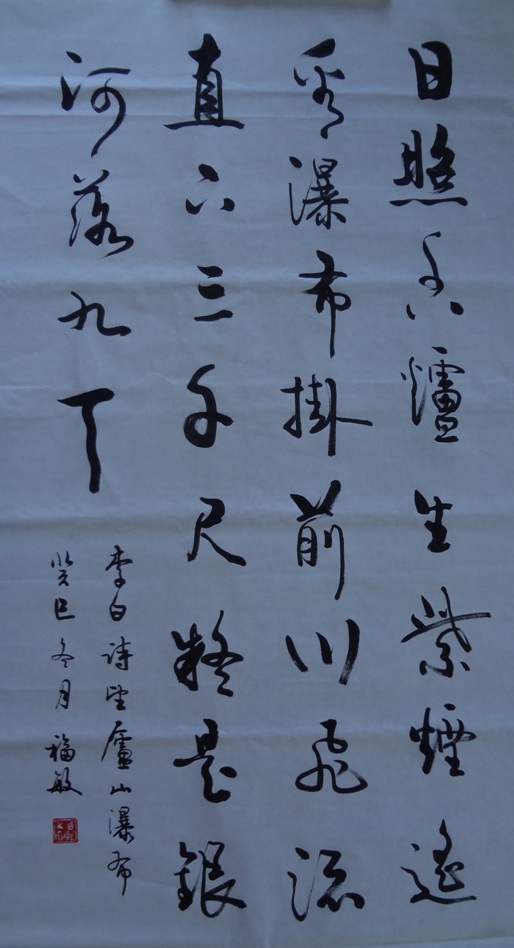 日照香爐生紫煙遙
看瀑布掛前川飛流
直下三千尺疑是銀
河落九天
李白詩望廬山瀑布
癸巳冬月福敏